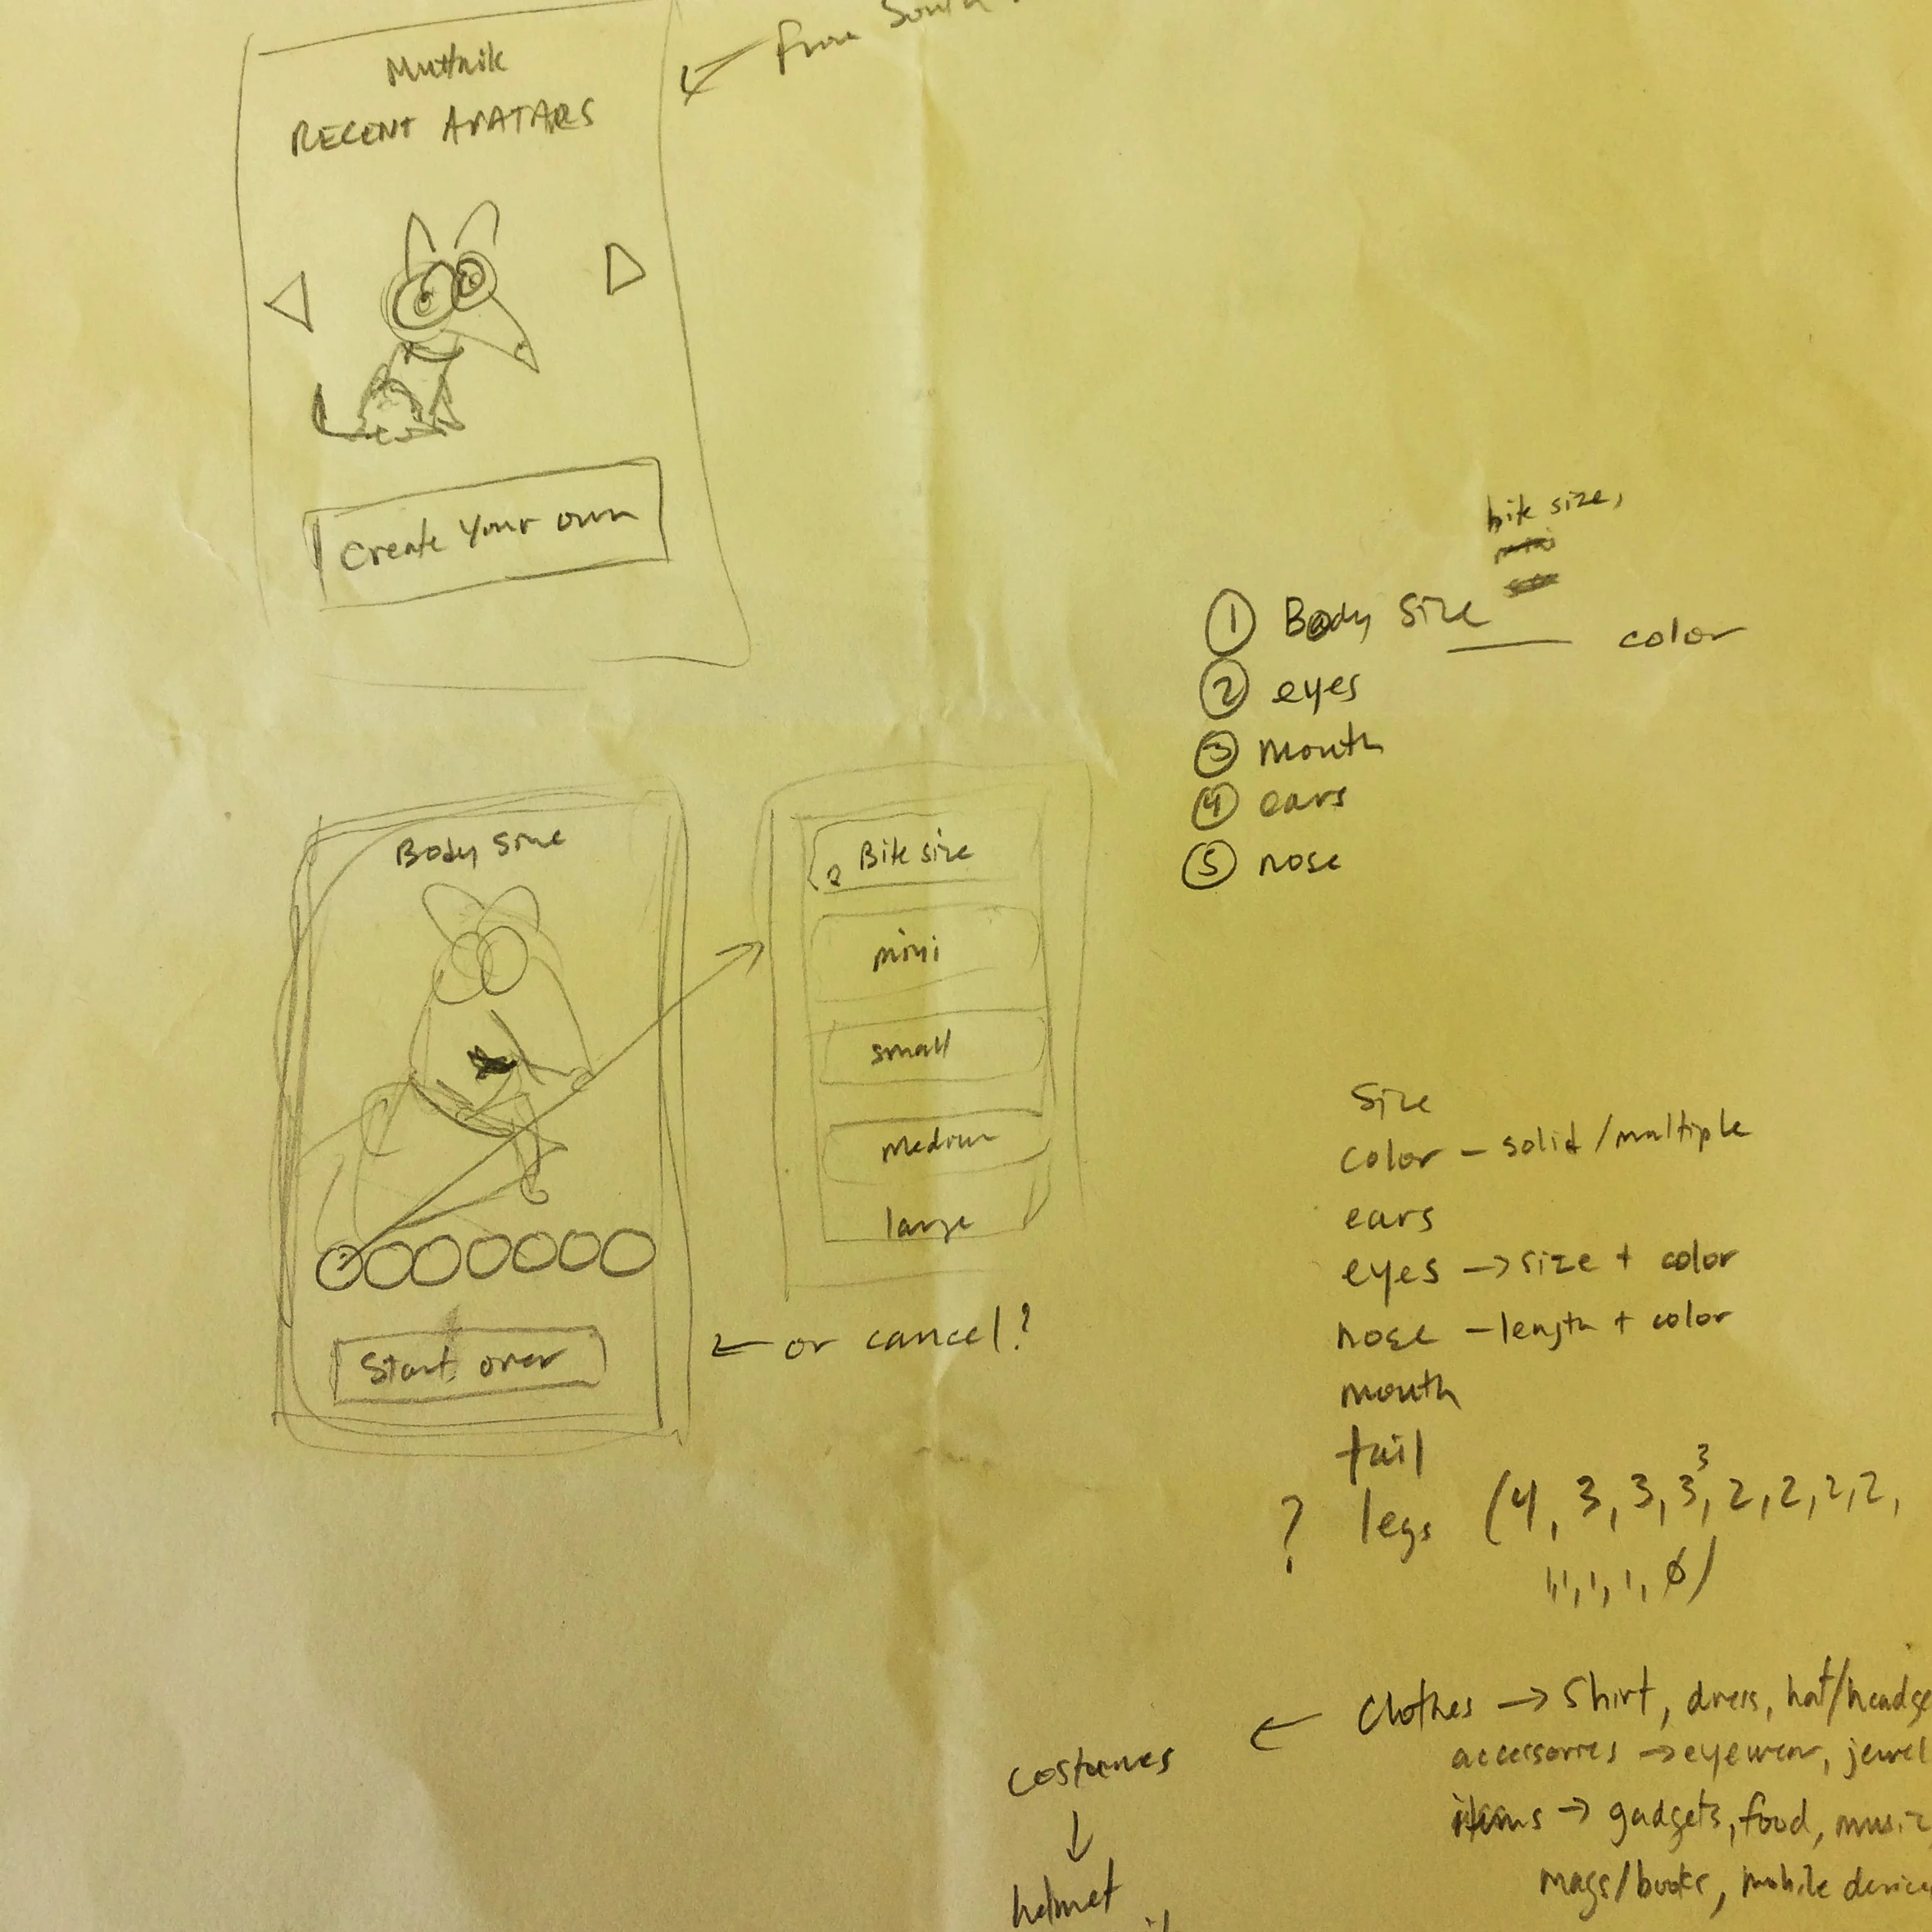 from
Muttnik
RECENT AVATARS
Create Your own
bite size,
① Body Size ___ color
② eyes
③ mouth
④ ears
⑤ nose
Body Size
Bite size
mini
small
Medium
large
Start over
← or cancel?
Size
color – solid/multiple
ears
eyes → size + color
nose – length + color
mouth
tail
? legs (4, 3, 3, 3, 3, 2, 2, 2, 2,
1, 1, 1, 1, 0)
← Clothes → Shirt, dress, hat/headge
costumes
↓
helmet
accessories → eyewear, jewel
items → gadgets, food, music
mags/books, mobile device